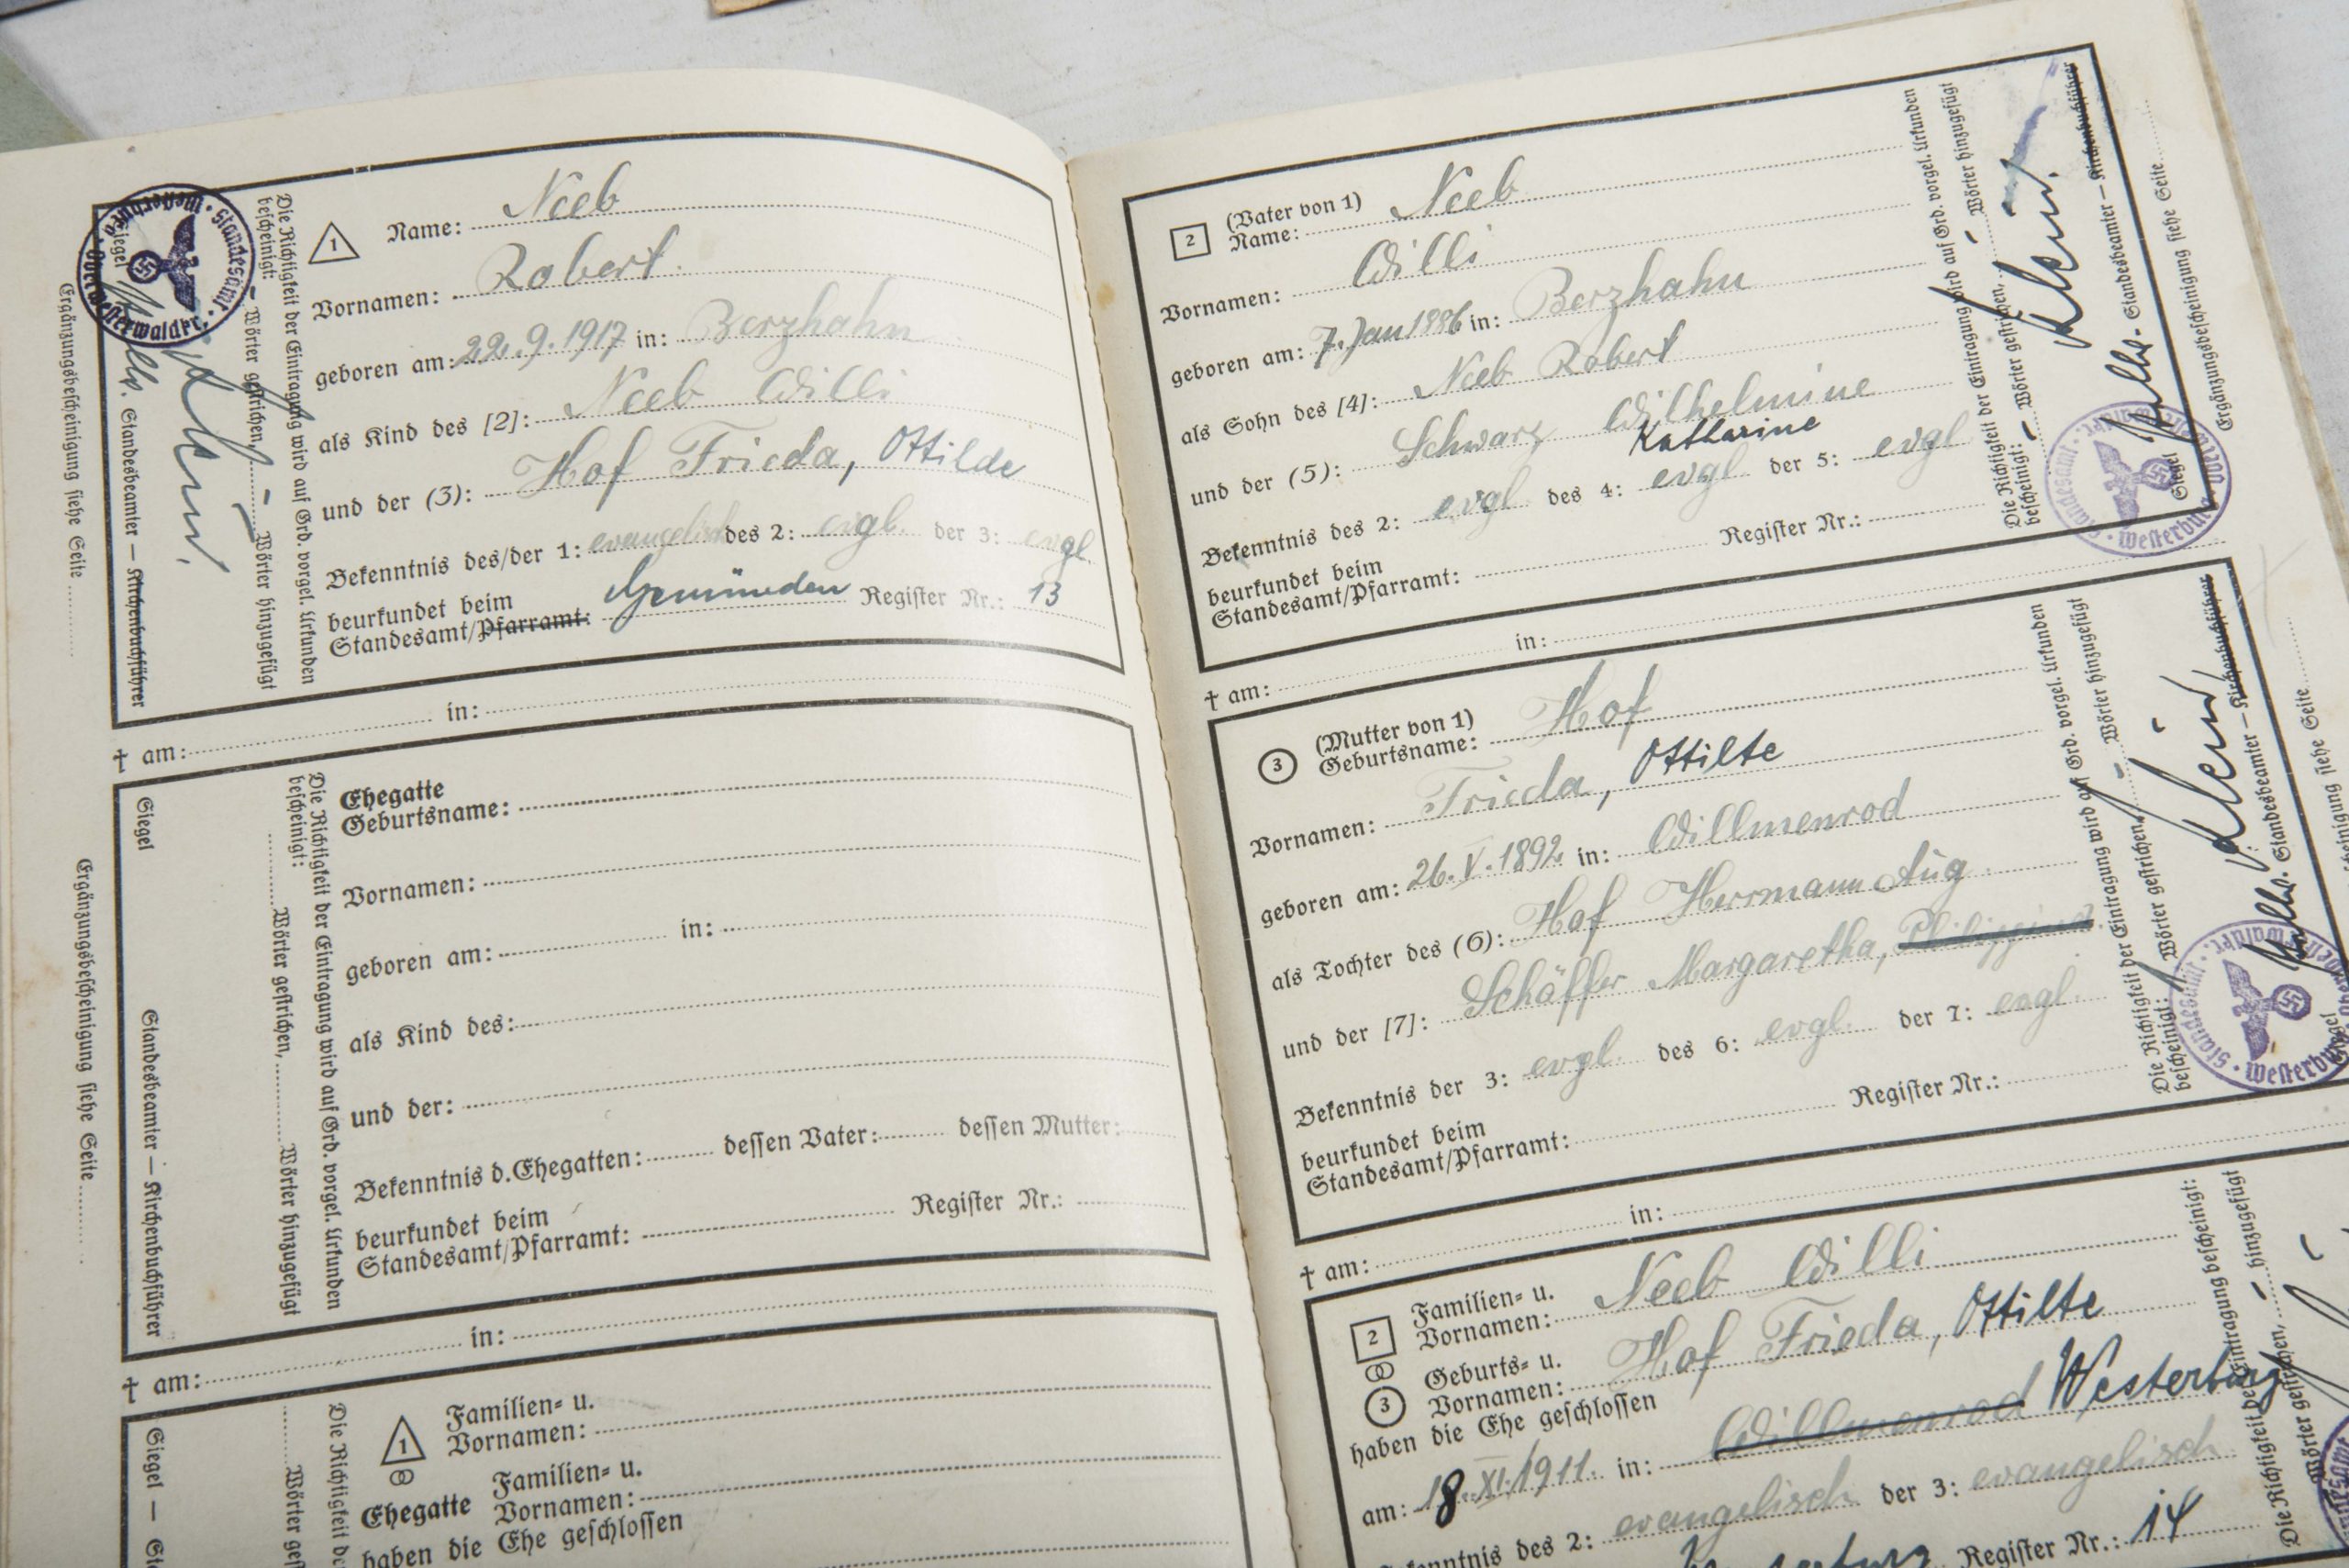 1
Name: Neeb
Vornamen: Robert
geboren am: 22.9.1917 in: Berzhahn
als Kind des [2]: Neeb Willi
und der (3): Hof Frieda, Ottilde
Bekenntnis des/der 1: evangelisch des 2: evgl. der 3: evgl
beurkundet beim
Standesamt/Pfarramt: Gemünden Register Nr.: 13
† am: in:
Die Richtigkeit der Eintragung wird auf Grd. vorgel. Urkunden
bescheinigt: – Wörter gestrichen, – Wörter hinzugefügt
Klein.
Siegel Standesbeamter — Kirchenbuchführer
Ergänzungsbescheinigung siehe Seite
Standesamt · Westerburg · Oberwesterwaldkr.
Ehegatte
Geburtsname:
Vornamen:
geboren am: in:
als Kind des:
und der:
Bekenntnis d. Ehegatten: dessen Vater: dessen Mutter:
beurkundet beim
Standesamt/Pfarramt: Register Nr.:
† am: in:
Die Richtigkeit der Eintragung wird auf Grd. vorgel. Urkunden
bescheinigt: Wörter gestrichen, Wörter hinzugefügt
Siegel Standesbeamter — Kirchenbuchführer
Ergänzungsbescheinigung siehe Seite
1
Familien- u.
Vornamen:
Ehegatte Familien- u.
Vornamen:
haben die Ehe geschlossen
Wörter
Siegel —
2
(Vater von 1)
Name: Neeb
Vornamen: Willi
geboren am: 7. Jan 1886 in: Berzhahn
als Sohn des [4]: Neeb Robert
und der (5): Schwarz Wilhelmine
Katharine
Bekenntnis des 2: evgl des 4: evgl der 5: evgl
beurkundet beim
Standesamt/Pfarramt: Register Nr.:
† am: in:
Die Richtigkeit der Eintragung wird auf Grd. vorgel. Urkunden
bescheinigt: – Wörter gestrichen, – Wörter hinzugefügt
Klein.
Siegel Standesbeamter — Kirchenbuchführer
Ergänzungsbescheinigung siehe Seite
Standesamt · Westerburg
3
(Mutter von 1)
Geburtsname: Hof
Vornamen: Frieda, Ottilte
geboren am: 26. V. 1892 in: Willmenrod
als Tochter des (6): Hof Herrmann Aug
und der [7]: Schäffer Margaretha, Philippina
Bekenntnis der 3: evgl. des 6: evgl. der 7: evgl.
beurkundet beim
Standesamt/Pfarramt: Register Nr.:
† am: in:
Die Richtigkeit der Eintragung wird auf Grd. vorgel. Urkunden
bescheinigt: Wörter gestrichen, – Wörter hinzugefügt
Klein
Siegel Standesbeamter — Kirchenbuchführer
siehe Seite
Standesamt · Westerburg
2
3
Familien- u.
Vornamen: Neeb Willi
Geburts- u.
Vornamen: Hof Frieda, Ottilte
haben die Ehe geschlossen
am: 18. XI. 1911. in: Willmenrod Westerburg
des 2: evangelisch der 3: evangelisch
Register Nr.: 14
Die Richtigkeit der Eintragung bescheinigt:
Wörter gestrichen, – hinzugefügt